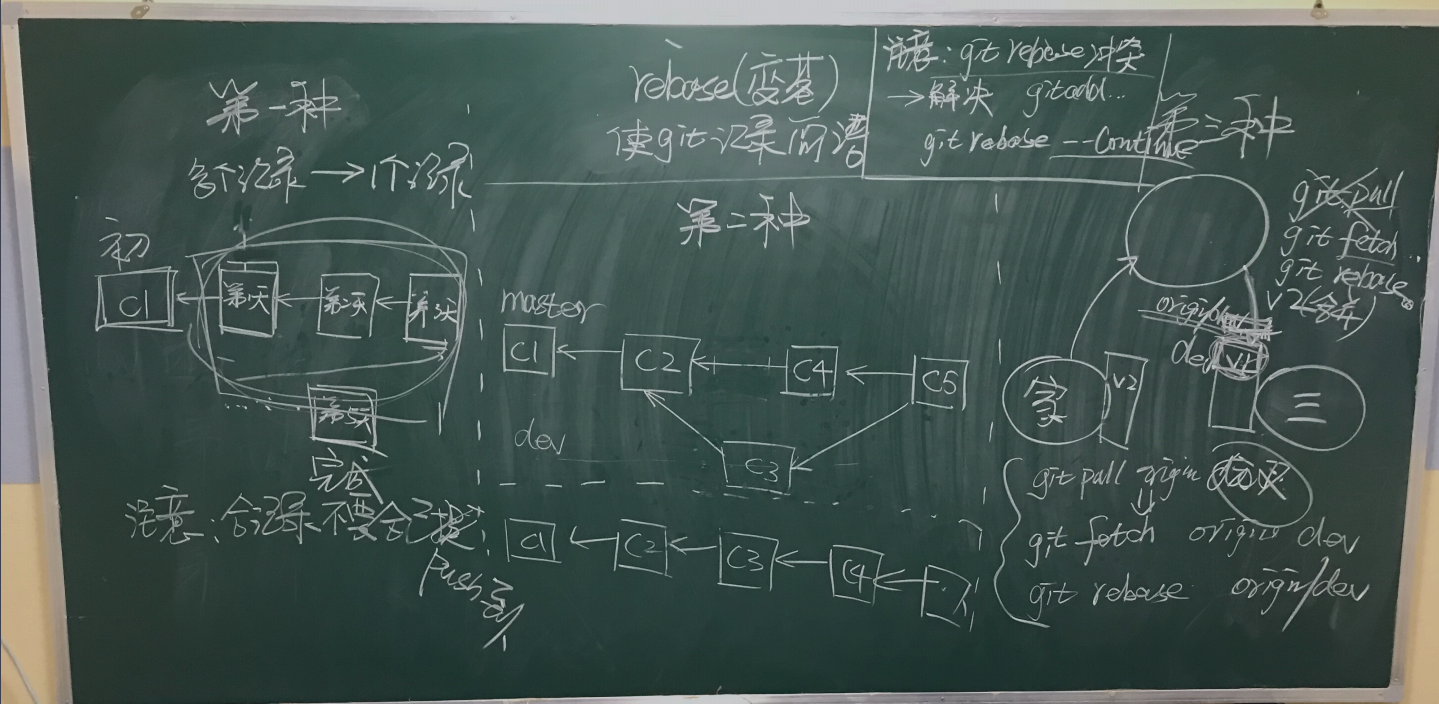 rebase(变基)
使git记录简洁
注意:git rebase冲突
→解决 git add...
git rebase --Continue
第一种
多个记录→1个记录
初
C1
第一天
第二天
第三天
......
第5天
完成
注意:合记录不要合已提交
push
第二种
master
C1
C2
C4
C5
dev
C3
C1
C2
C3
C4
第三种
git pull
git fetch..
git rebase
V2(合并)
origin/dev
dev
V1
家
V2
git pull origin dev
git fetch origin dev
git rebase origin/dev